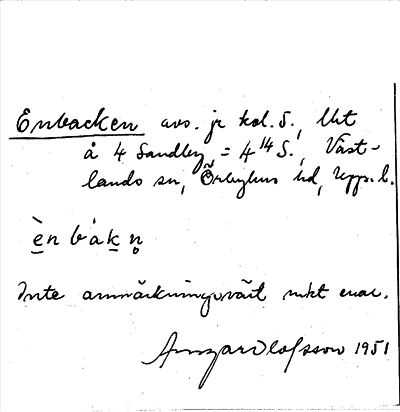 Enbacken avs. jr kol. S., Utt
å 4 Sandby = 4¹⁴ S., Väst-
lands sn, Örbyhus hd, Upps. l.
è̲nbåk̲n̥
Inte anmärkningsvärt mkt enar.
Ansgar Olofsson 1951